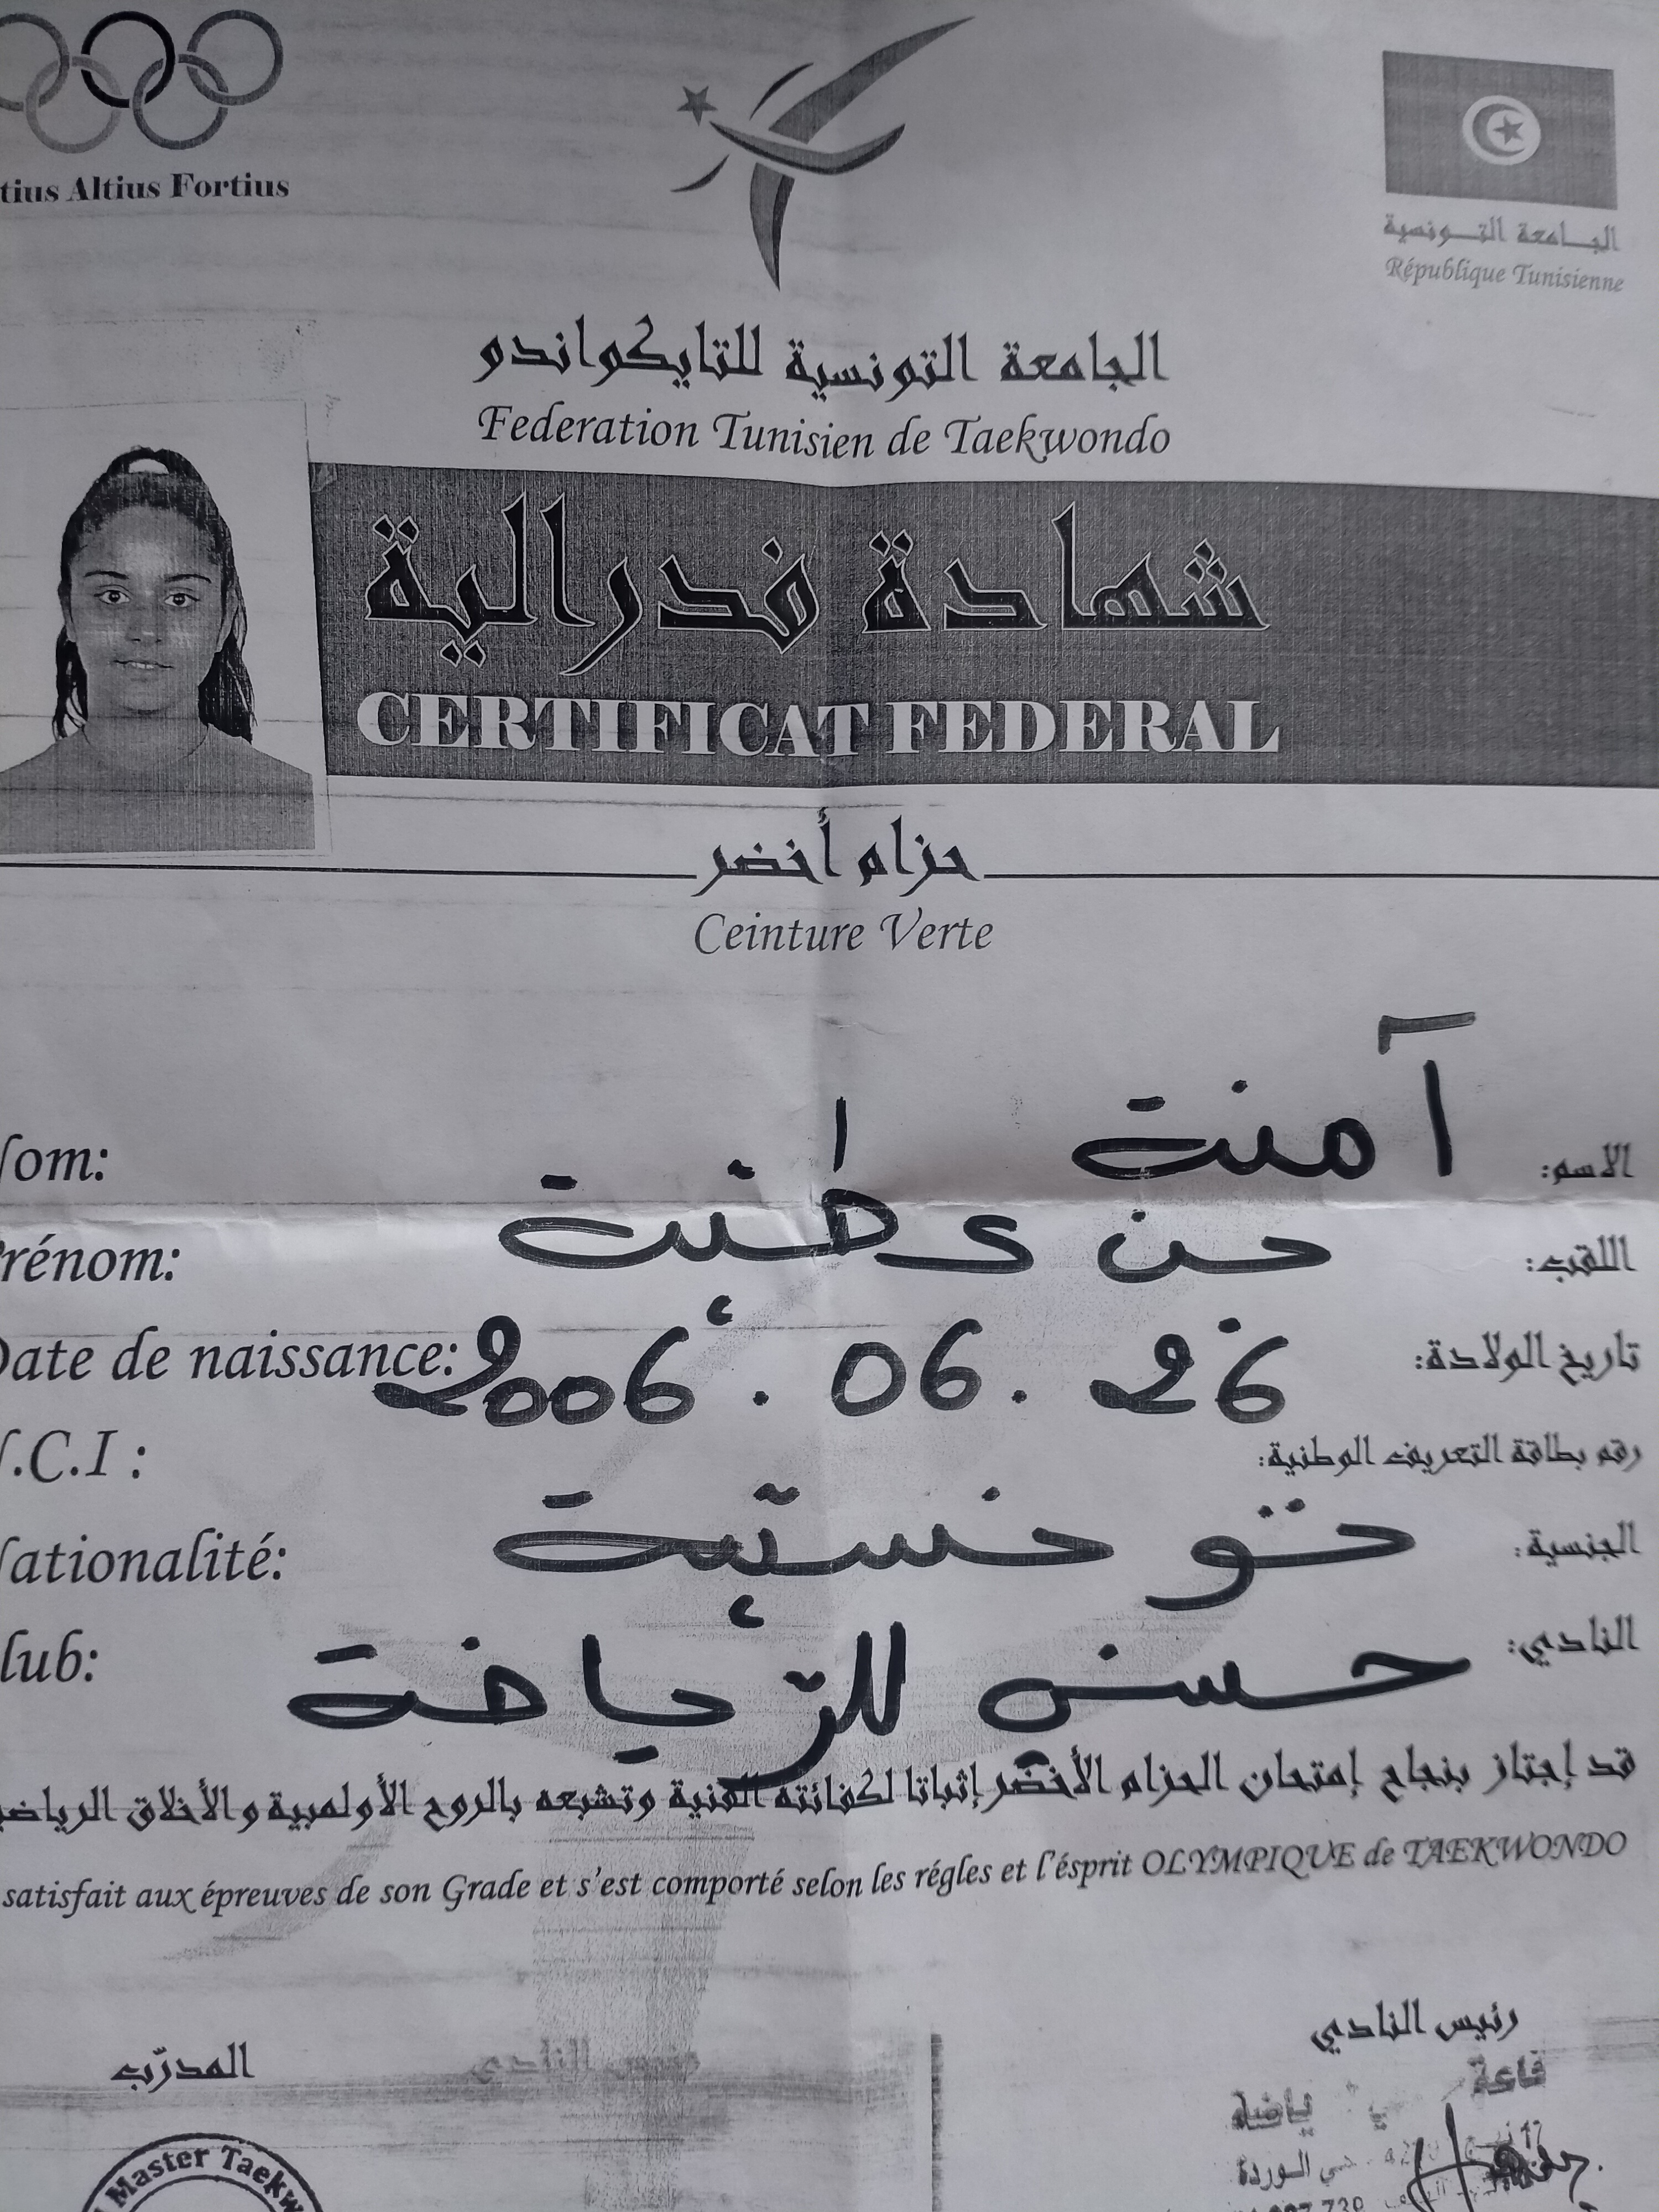 tius Altius Fortius
الجـامعة التـونسية
République Tunisienne
الجامعة التونسية للتايكواندو
Federation Tunisien de Taekwondo
شهادة فدرالية
CERTIFICAT FEDERAL
حزام أخضر
Ceinture Verte
om: آمنة الاسم:
rénom: بن عطية اللقب:
Date de naissance: 2006 . 06 . 26 تاريخ الولادة:
.C.I : رقم بطاقة التعريف الوطنية:
ationalité: تونسية الجنسية:
lub: حسن للرّياضة النادي:
قد إجتاز بنجاح إمتحان الحزام الأخضر إثباتا لكفائته الفنية وتشبعه بالروح الأولمبية والأخلاق الرياضي
satisfait aux épreuves de son Grade et s'est comporté selon les régles et l'ésprit OLYMPIQUE de TAEKWONDO
رئيس النادي
المدرّب
قاعة
حي الوردة
Master Taekw